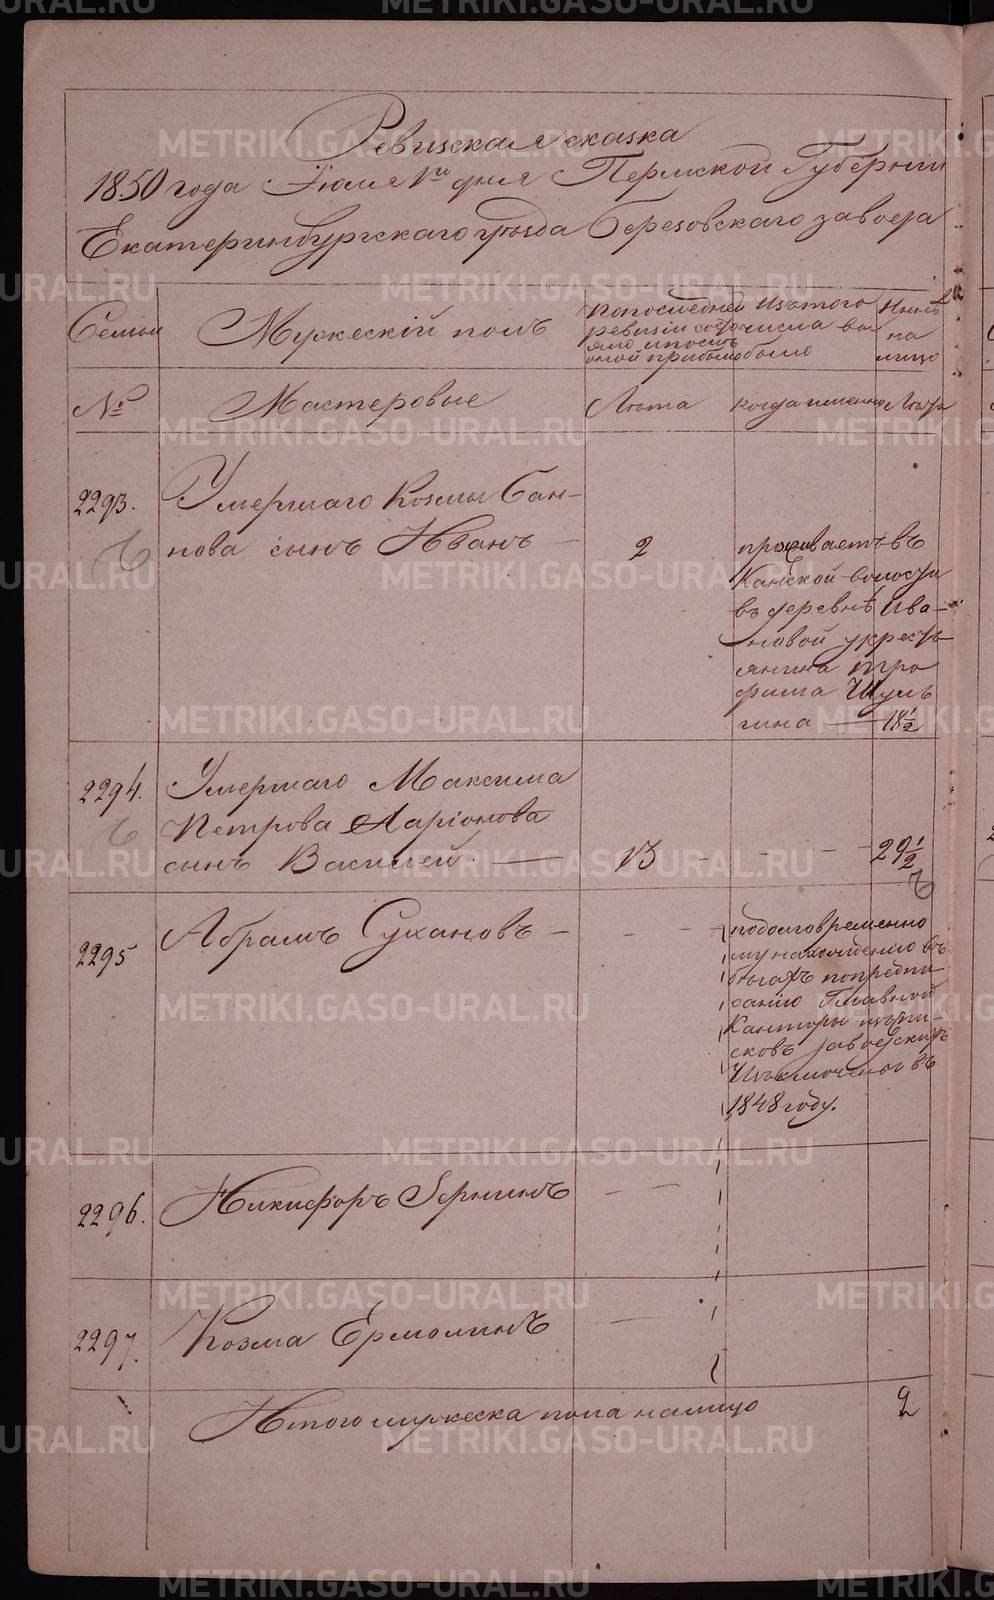 Ревизская сказка
1850 года Июля 1го дня Пермской Губернии
Екатеринбургскаго уѣзда Березовскаго завода
Семьи
Мужескій полъ
По последней
ревизіи состо
яло и послѣ
оной прибыло
Изъ того
числа вы
было
Нынѣ
на
лицо
№
Мастеровые
Лѣта
когда именно
Лѣта
2293.
Умершаго Козмы Бан-
нова сынъ Иванъ —
2
проживаетъ въ
Канской волости
въ деревнѣ Ива-
новой у кресть
янина Тро
фима Шуль
гина — 18 1/2
2294.
Умершаго Максима
Петрова Ларіонова
сынъ Василей —
13 - - - - 29 1/2
2295
Абрамъ Сухановъ - - -
подолговременно
му нахожденію въ
бѣгахъ по предпи
санію Главной
Канторы изъ спи-
сковъ заводскихъ
Изключены въ
1848 году.
2296.
Никифоръ Зернинъ - -
2297.
Козма Ермолинъ —
Итого мужеска пола налицо
2
METRIKI.GASO-URAL.RU